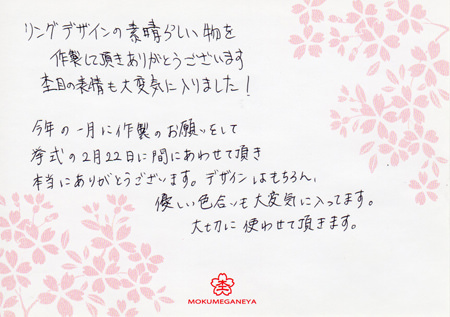 リングデザインの素晴らしい物を
作製して頂きありがとうございます
杢目の表情も大変気に入りました!
今年の一月に作製のお願いをして
挙式の2月22日に間にあわせて頂き
本当にありがとうございます。デザインはもちろん、
優しい色合いも大変気に入ってます。
大切に使わせて頂きます。
杢
MOKUMEGANEYA